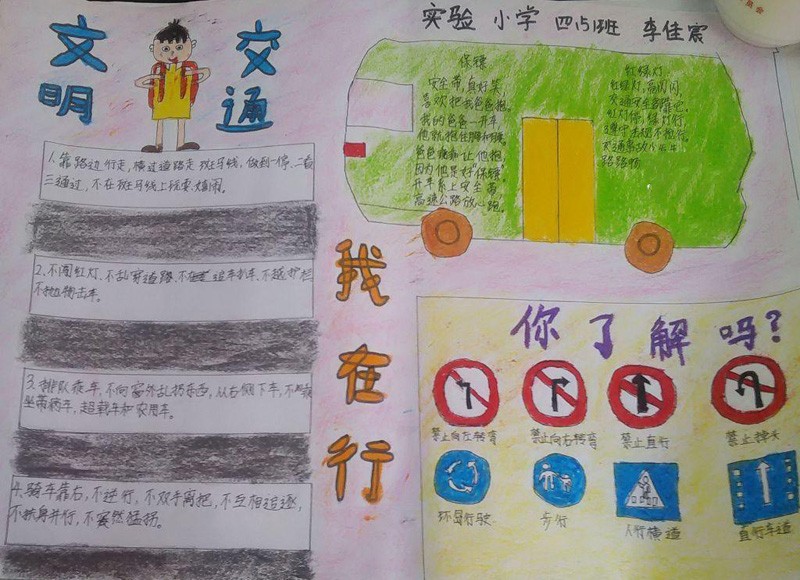 实验 小学 四(5)班 李佳宸
文明
交通
1.靠路边行走,横过道路走斑马线,做到一停、二看
三通过,不在斑马线上玩耍、嬉闹。
2.不闯红灯、不乱穿道路、不在 追车扒车、不越护栏
击车。
3.排队乘车,不向窗外乱扔东西,从右侧下车,不
坐带病车,超载车和农用车。
4.骑车靠右,不逆行,不双手离把,不互相追逐,
不扶身并行,不突然猛拐。
我在行
保镖
安全带,真好笑,
喜欢把我爸爸抱。
我的爸爸一开车,
他就抱住胸和腰。
爸爸 让他抱,
因为他是好保镖,
开车系上安全带,
高速公路放心跑。
红绿灯
红绿灯,高 闪,
交通安全 它。
红灯停,绿灯行,
路路畅
你了解吗?
禁止向左转弯
禁止向右转弯
禁止直行
禁止掉头
环岛行驶
步行
人行横道
直行车道